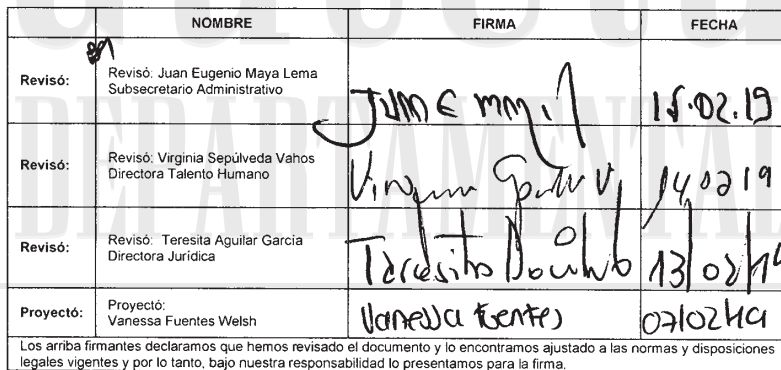 NOMBRE FIRMA FECHA
Revisó: Revisó: Juan Eugenio Maya Lema
Subsecretario Administrativo
15.02.19
Revisó: Revisó: Virginia Sepúlveda Vahos
Directora Talento Humano
14 02 19
Revisó: Revisó: Teresita Aguilar García
Directora Jurídica
Teresita
13/02/19
Proyectó: Proyectó:
Vanessa Fuentes Welsh
Vanessa Fuentes 07/02/19
Los arriba firmantes declaramos que hemos revisado el documento y lo encontramos ajustado a las normas y disposiciones
legales vigentes y por lo tanto, bajo nuestra responsabilidad lo presentamos para la firma.
DEPARTAMENTAL